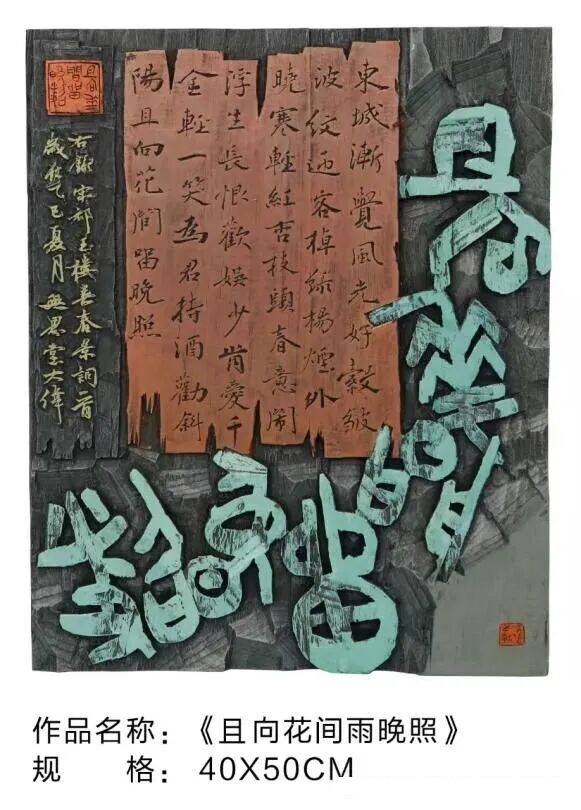 且向花間留晚照
東城漸覺風光好縠皺
波紋迎客棹綠楊煙外
曉寒輕紅杏枝頭春意鬧
浮生長恨歡娛少肯愛千
金輕一笑為君持酒勸斜
陽且向花間留晚照
右錄宋祁玉樓春春景詞一首
歲乙巳夏月無界堂大偉
作品名称：《且向花间雨晚照》
规 格：40X50CM